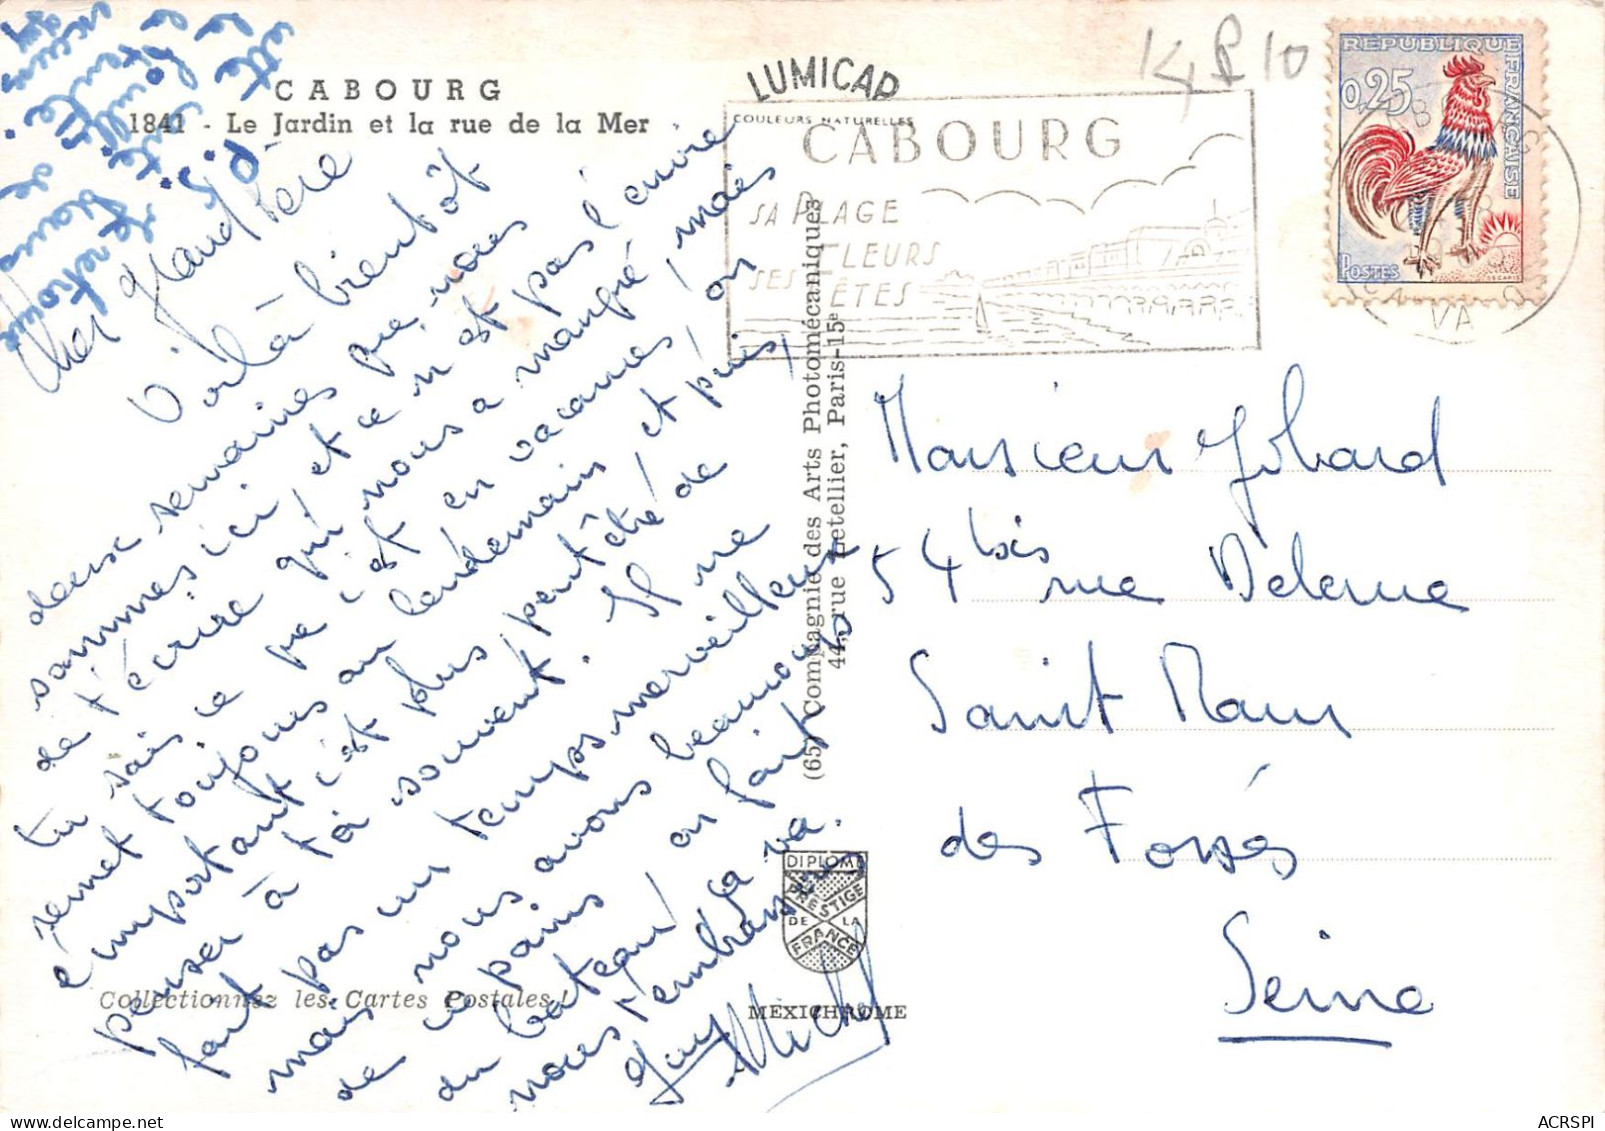 CABOURG
1841 - Le Jardin et la rue de la Mer
LUMICAP
COULEURS NATURELLES
K P 10
CABOURG
SA PLAGE
SES FLEURS
SES FÊTES
REPUBLIQUE FRANÇAISE
0,25
POSTES
Cher grand Père
Voilà bientôt
deux semaines que nous
sommes ici, et ce n'est pas l'envie
de t'écrire qui nous a manqué, mais
tu sais ce que c'est en vacances, on
remet toujours au lendemain, et puis,
l'important c'est plus peut être de
penser à toi souvent. Il ne
fait pas un temps merveilleux
mais nous avons beaucoup
de copains, on fait
du bateau, ça va.
nous t'embrassons
Guy Michel
P.S.
Je retrouve
cette carte
Monsieur Jobard
54 bis rue Delerue
Saint Maur
des Fossés
Seine
(65) Compagnie des Arts Photomécaniques
44, rue Letellier, Paris-15e
DIPLOME
PRESTIGE
DE LA
FRANCE
Collectionnez les Cartes Postales !
MEXICHROME
ACRSPI